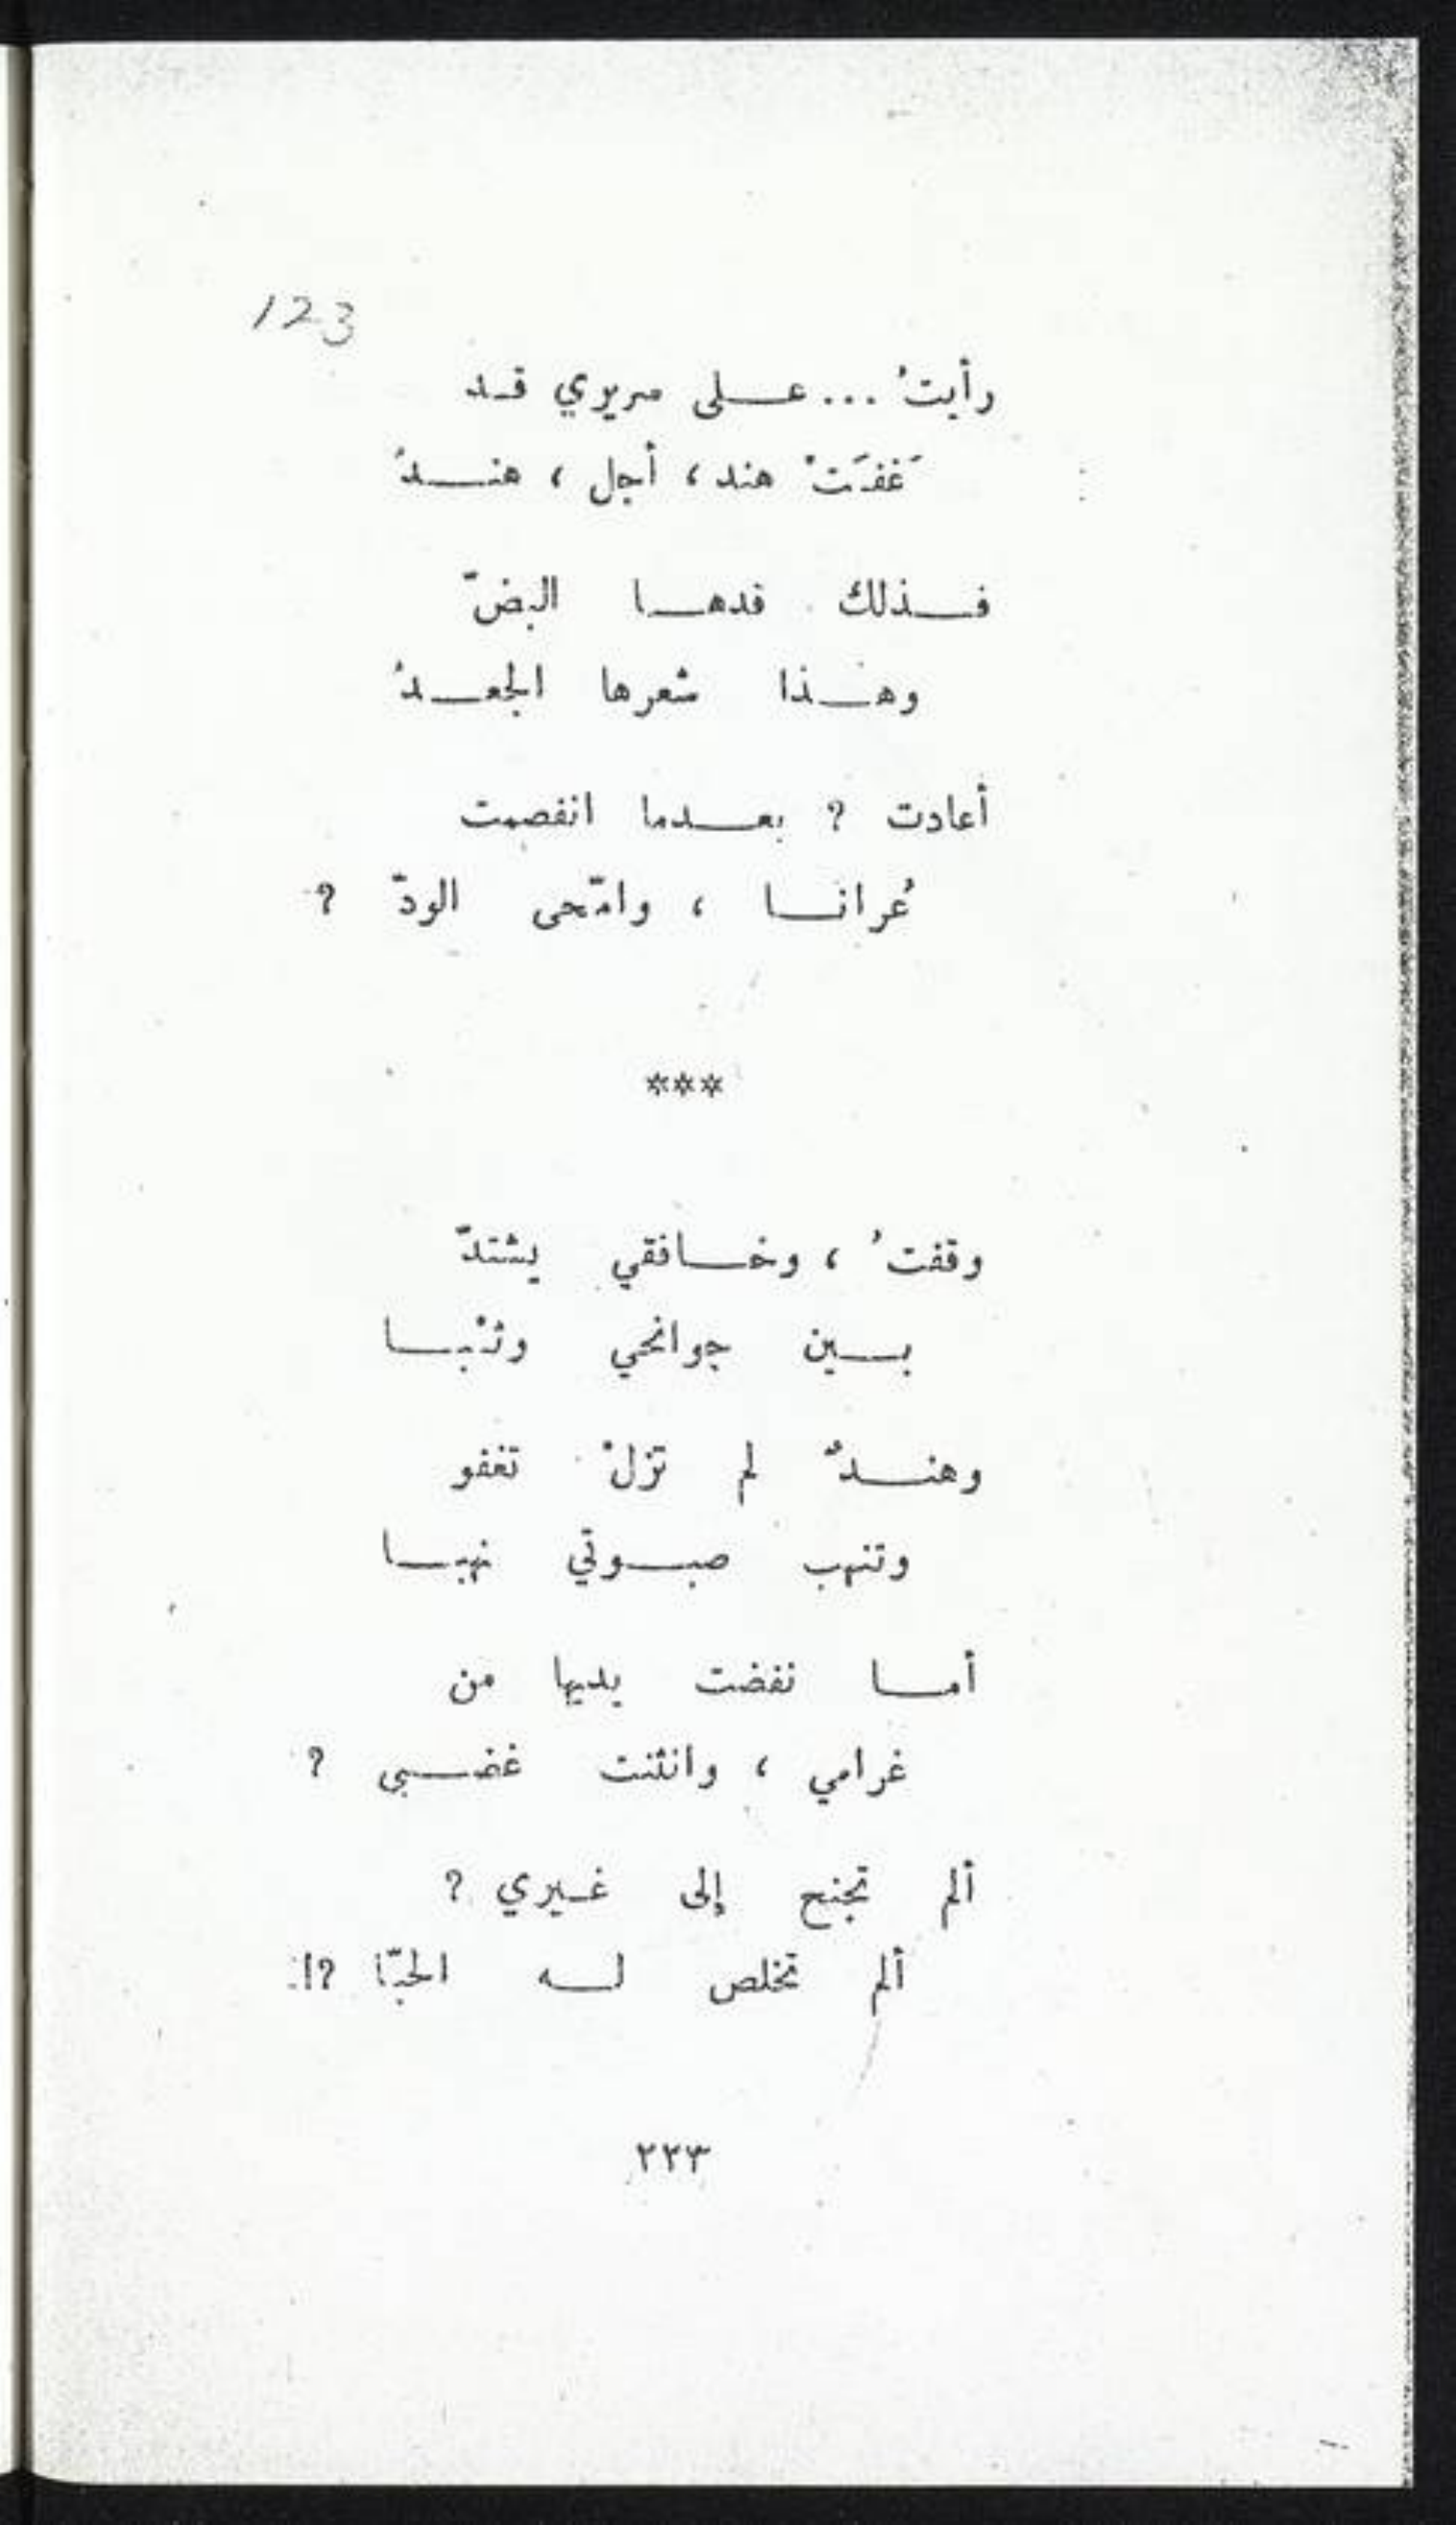 123
رأيتُ ... عـلى سريري قـد
غَفَتْ هند ، أجل ، هنـدُ
فـذلك قدهـا البضّ
وهـذا شعرها الجعـدُ
أعادت ؟ بعـدما انفصمت
عُرانـا ، وامّحى الودّ ؟
***
وقفتُ ، وخـافقي يشتدّ
بـين جوانحي وثْبـا
وهنـدٌ لم تزلْ تغفو
وتنهب صبـوتي نهبـا
أمـا نفضت يديها من
غرامي ، وانثنت غضـبى ؟
ألم تجنح إلى غـيري ؟
ألم تخلص لـه الحبّا ؟!
٢٢٣